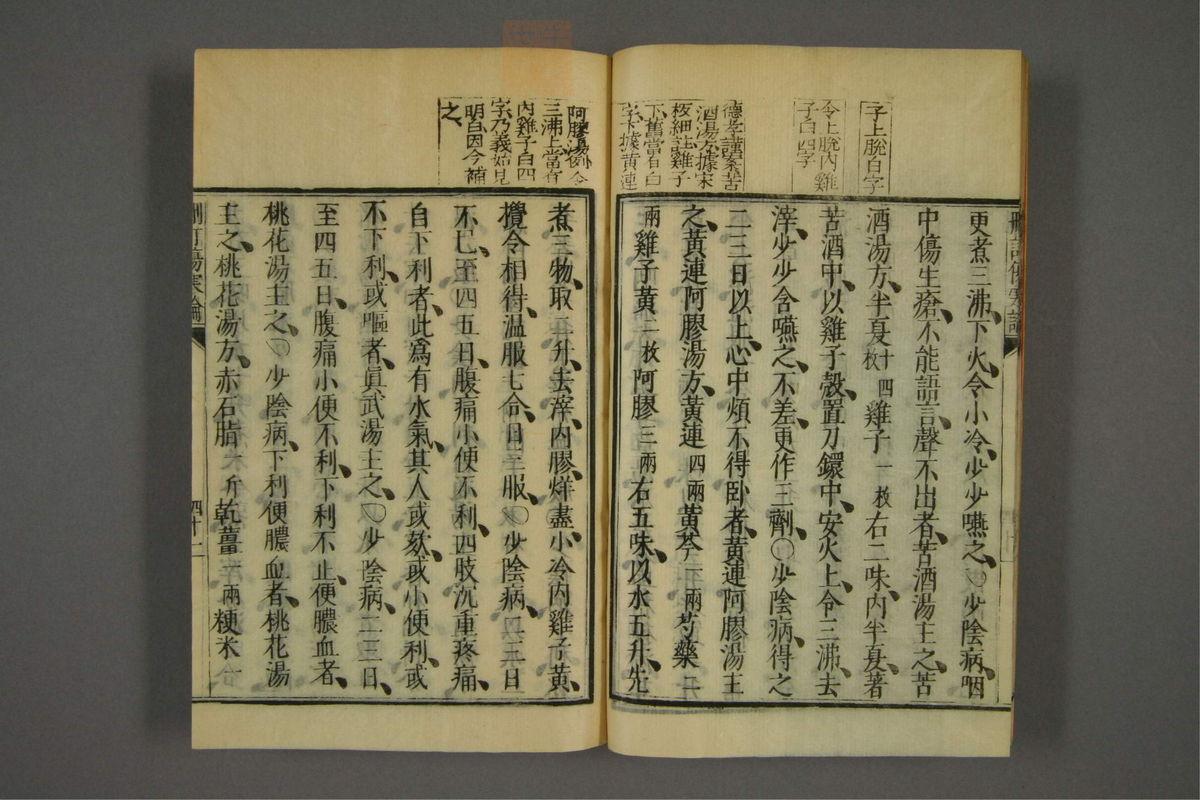 子上脫白字
令上脫內雞
子白四字
德孝謹案苦
酒湯方據宋
板細註雞子
下舊當有白
字下據黃連
阿膠湯例令
三沸上當有
內雞子白四
字乃義始見
明白因今補
之
更煮三沸下火令小冷少少嚥之〇少陰病咽
中傷生瘡不能語言聲不出者苦酒湯主之苦
酒湯方半夏十四枚雞子一枚右二味內半夏著
苦酒中以雞子殼置刀鐶中安火上令三沸去
滓少少含嚥之不差更作三劑〇少陰病得之
二三日以上心中煩不得臥者黃連阿膠湯主
之黃連阿膠湯方黃連四兩黃芩一兩芍藥二
兩雞子黃二枚阿膠三兩右五味以水五升先
煮三物取二升去滓內膠烊盡小冷內雞子黃
攪令相得温服七合日三服〇少陰病二三日
不已至四五日腹痛小便不利四肢沉重疼痛
自下利者此爲有水氣其人或欬或小便利或
不下利或嘔者眞武湯主之〇少陰病二三日
至四五日腹痛小便不利下利不止便膿血者
桃花湯主之〇少陰病下利便膿血者桃花湯
主之桃花湯方赤石脂一斤乾薑一兩粳米一
四十一